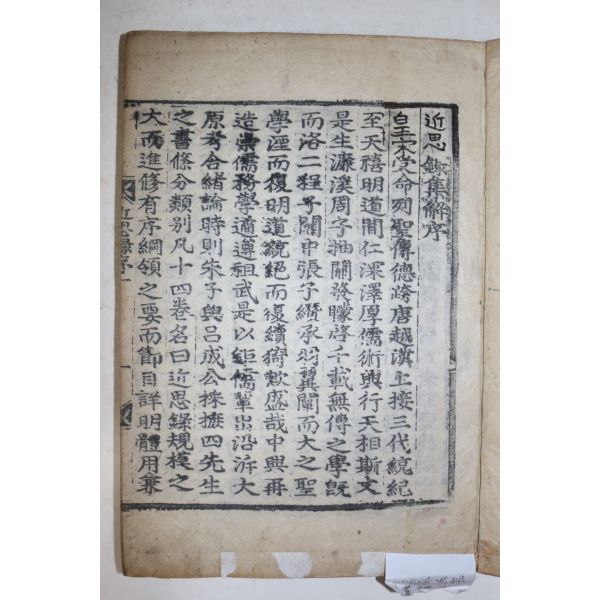 近思錄集解序
皇宋受命列聖傳德跨唐越漢上接三代統紀
至天禧明道間仁深澤厚儒術興行天相斯文
是生濂溪周子抽關發矇啓千載無傳之學旣
而洛二程子關中張子纘承羽翼闡而大之聖
學湮而復明道統絕而復續猗歟盛哉中興再
造崇儒務學遹遵祖武是以鉅儒輩出沿泝大
原考合緖論時則朱子與呂成公採摭四先生
之書條分類別凡十四卷名曰近思錄規模之
大而進修有序綱領之要而節目詳明體用兼
近思錄序
一